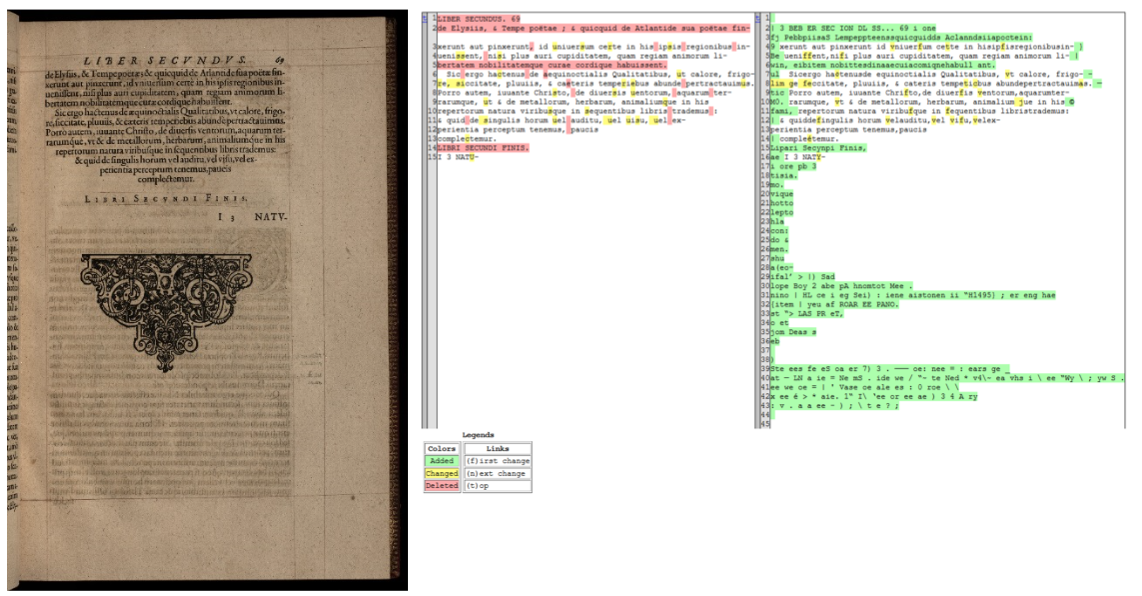 LIBER SECVNDVS. 69
de Elysiis, & Tempe poëtæ; & quicquid de Atlantide sua poëta fin-
xerunt aut pinxerunt, id vniuersum certè in his ipsis regionibus in-
uenissent, nisi plus auri cupiditatem, quam regiam animorum li-
bertatem nobilitatemque curæ cordique habuissent.
Sic ergo hactenus de æquinoctialis Qualitatibus, vt calore, frigo-
re, siccitate, pluuiis, & cæteris temperiebus abunde pertractauimus.
Porro autem, iuuante Christo, de diuersis ventorum, aquarum ter-
rarumque, vt & de metallorum, herbarum, animaliumque in his
repertorum natura viribusque in sequentibus libris trademus:
& quid de singulis horum vel auditu, vel visu, vel ex-
perientia perceptum tenemus, paucis
complectemur.
LIBRI SECVNDI FINIS.
I 3 NATV-
1 LIBER SECUNDUS. 69
2 de Elysiis, & Tempe poëtae ; & quicquid de Atlantide sua poëtae fin-
3 xerunt aut pinxerunt, id uniuersum certe in his ipsis regionibus in-
4 uenissent, nisi plus auri cupiditatem, quam regiam animorum li-
5 bertatem nobilitatemque curae cordique habuissent.
6 Sic ergo hactenus de aequinoctialis Qualitatibus, ut calore, frigo-
7 re, siccitate, pluuiis, & caeteris temperiebus abunde pertractauimus.
8 Porro autem, iuuante Christo, de diuersis uentorum, aquarum ter-
9 rarumque, ut & de metallorum, herbarum, animaliumque in his
10 repertorum natura viribusque in sequentibus libris trademus :
11 & quid de singulis horum uel auditu, uel uisu, uel ex-
12 perientia perceptum tenemus, paucis
13 complectemur.
14 LIBRI SECUNDI FINIS.
15 I 3 NATU-
1
2 | 3 BEB ER SEC ION DL SS... 69 i one
3 fj PebbpiisaS Lempeppteenasquicguidds Aclanndsiiapoctein:
4 9 xerunt aut pinxerunt id vniuerfum cette in hisipfisregionibusin- )
5 Be ueniffent,nifi plus auri cupiditatem, quam regiam animorum li- |
6 win, eibitem nobittesdinaaecuiacomiqnehabull ant.
7 ul Sicergo haétenusde equinoctialis Qualitatibus, vt calore, frigo- -
8 lim ge feccitate, pluuiis, & cateris tempeticbus abundepertractauimas. -
9 tic Porro autem, iuuante Chrifto,de diuerfis ventorum,aquarumter-
10 MO, rarumque, vt & de metallorum, herbarum, animalium jue in his ©
11 fami, repertorum natura viribufque in fequentibus libristrademus:
12 | & quiddefingulis horum velauditu,vel vifu,velex-
13 perientia perceptum tenemus,paucis
14 | compleétemur.
15 Lipari Secynpi Finis,
16 ae I 3 NATY-
17 i ore pb 3
18 tisia.
19 mo.
20 vique
21 hotto
22 lepto
23 hla
24 con:
25 do &
26 men.
27 shu
28 a(eo-
29 ifal' > |) Sad
30 lope Boy 2 abe pA hnomtot Mee .
31 nino | HL ce i eg Sei) : iene aistonen ii "MI495) ; er eng hae
32 (item | yeu af ROAR EE PANO.
33 st "> LAS PR eT,
34 o et
35 jom Deas s
36 eb
37
38 )
39 Ste ees fe eS oa er 7) 3 . —— oe: nee = : ears ge _
40 at — LN a ie = Ne mS . ide we / "- te Ned * v4\- ea vhs i \ ee "Wy \ ; yw S .
41 ee we oe = | ' Vase oe ale es : 0 roe \ \
42 x ee é > * aie. l" I\ 'ee or ee ae ) 3 4 A ry
43 : v . a a ee - ) ; \ t e ? ;
44
45
Legends
Colors Links
Added (f)irst change
Changed (n)ext change
Deleted (t)op